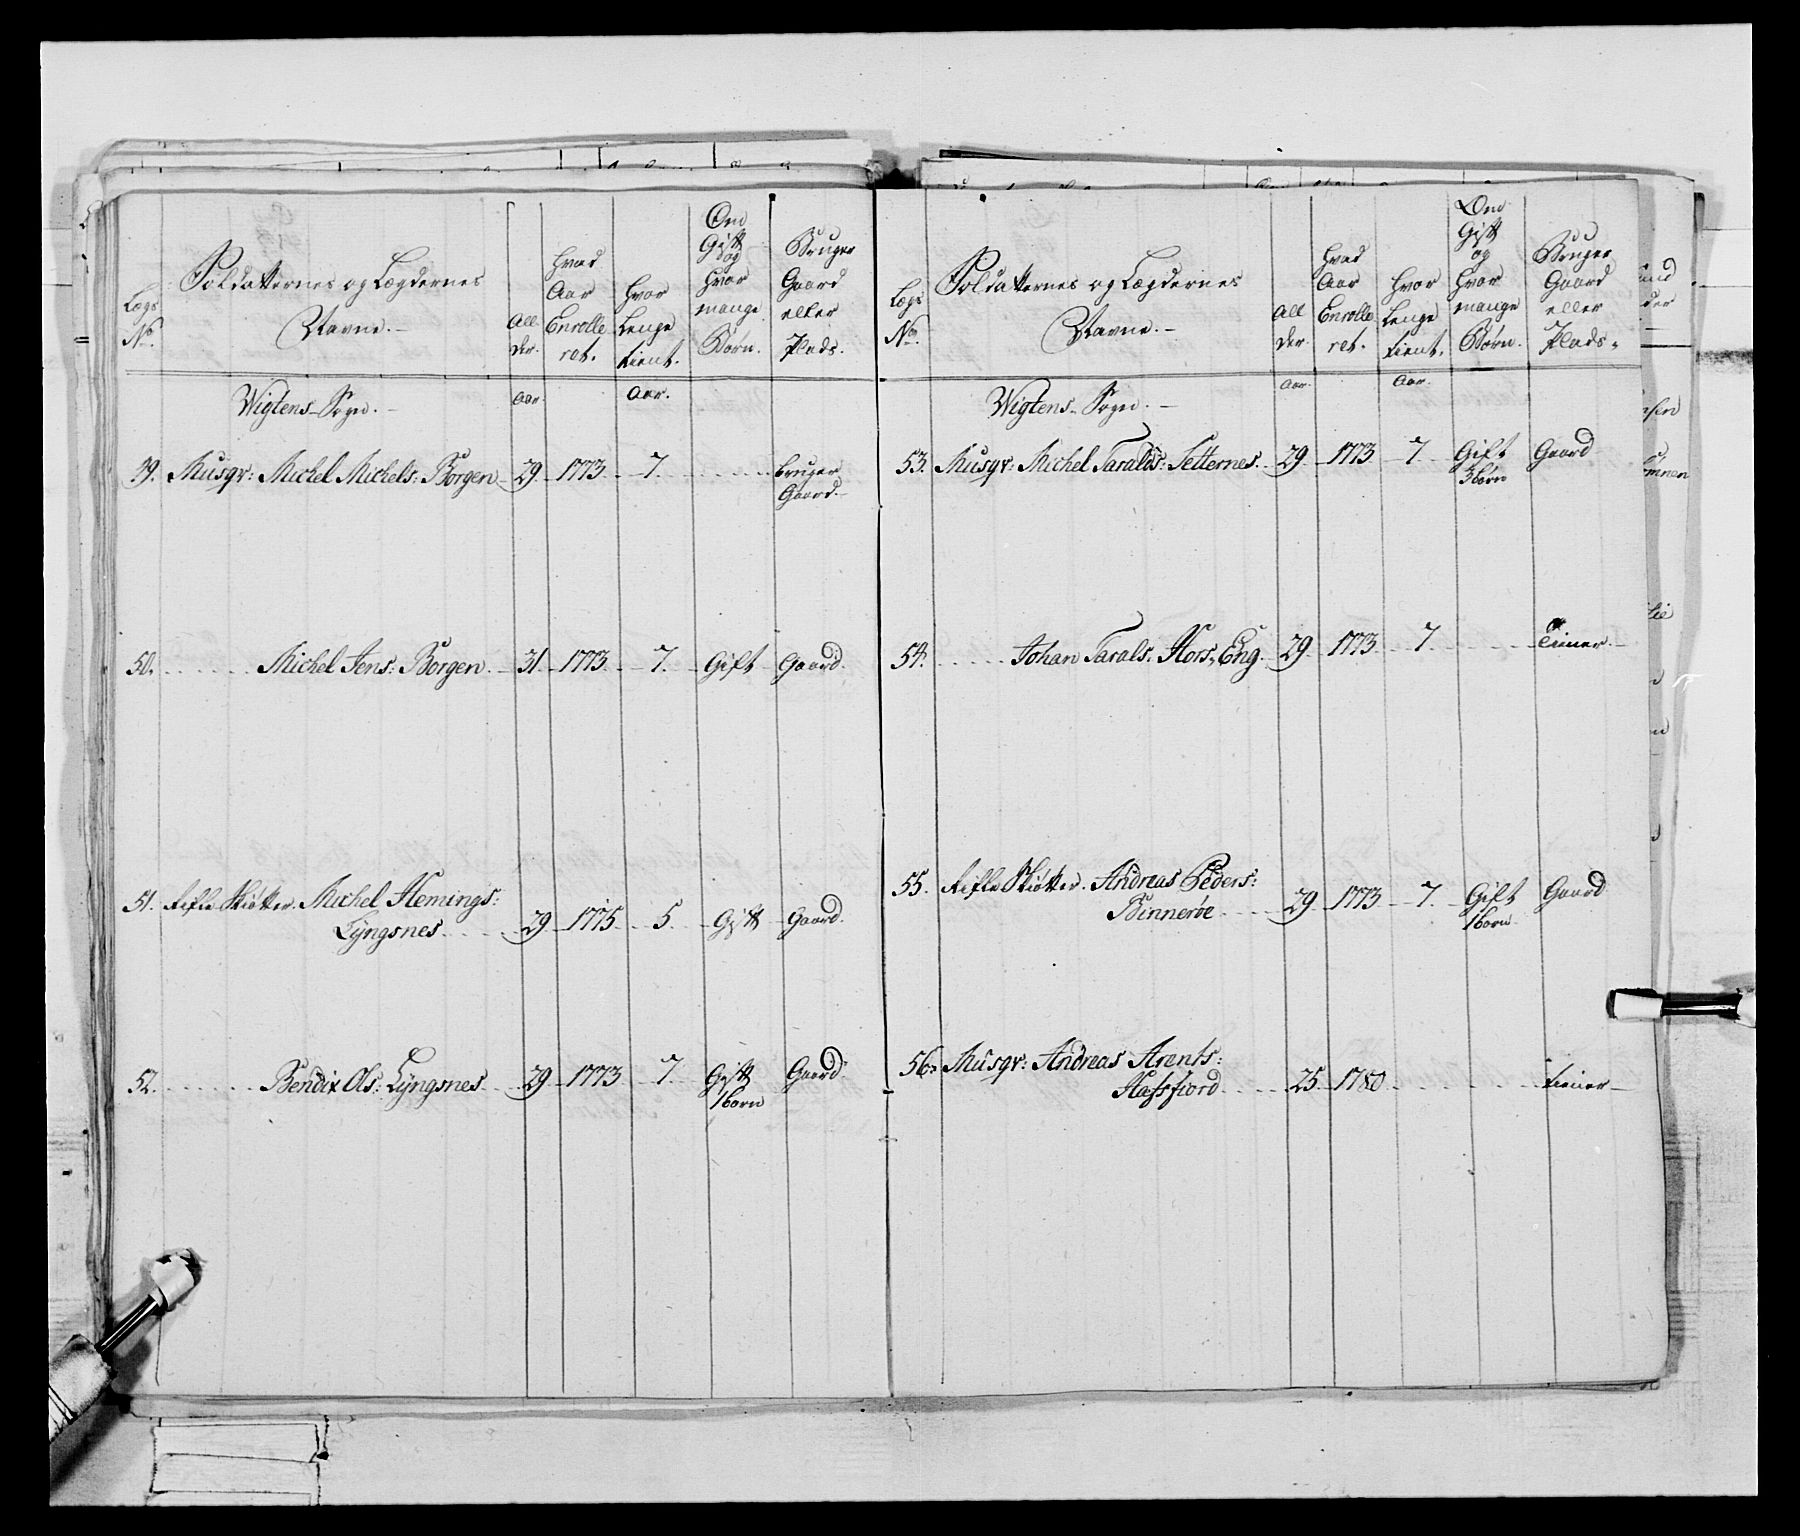 Lægs No.
Soldatternes og Lægdernes Navne.
All der.
Hvad Aar Enrolle ret.
Hvor Lenge tient.
Om Gift og Hvor mange Børn.
Bruger Gaard eller Plads.
Wigtens Sogn. Aar. Aar.
49. Musqr: Michel Michels: Borgen 29. 1773. 7. bruger
Gaard.
50. Michel Jens: Borgen 31. 1773. 7. Gift Gaard.
51. Rifle Skiøtter. Michel Hemings:
Lÿngsnes 29 1775 5. Gift Gaard.
52. Bendix Ols: Lÿngsnes 29 1773 7. Gift Gaard
1 barn
Lægs No.
Soldatternes og Lægdernes Navne.
All der.
Hvad Aar Enrolle ret.
Hvor Lenge tient.
Om Gift og Hvor mange Børn.
Bruger Gaard eller Plads.
Wigtens Sogn. Aar. Aar.
53. Musqr: Michel Taralds: Setternes 29. 1773 7 Gift Gaard
3 børn
54. Johan Tarals: Hors, Eng. 29 1773 7. Tiener.
55. Rifle Skiøtter. Andreas Peders:
Binnerøe 29. 1773 7. Gift Gaard
1 barn
56. Musqr: Andreas Arents:
Hafsfiord 25. 1780 tiener